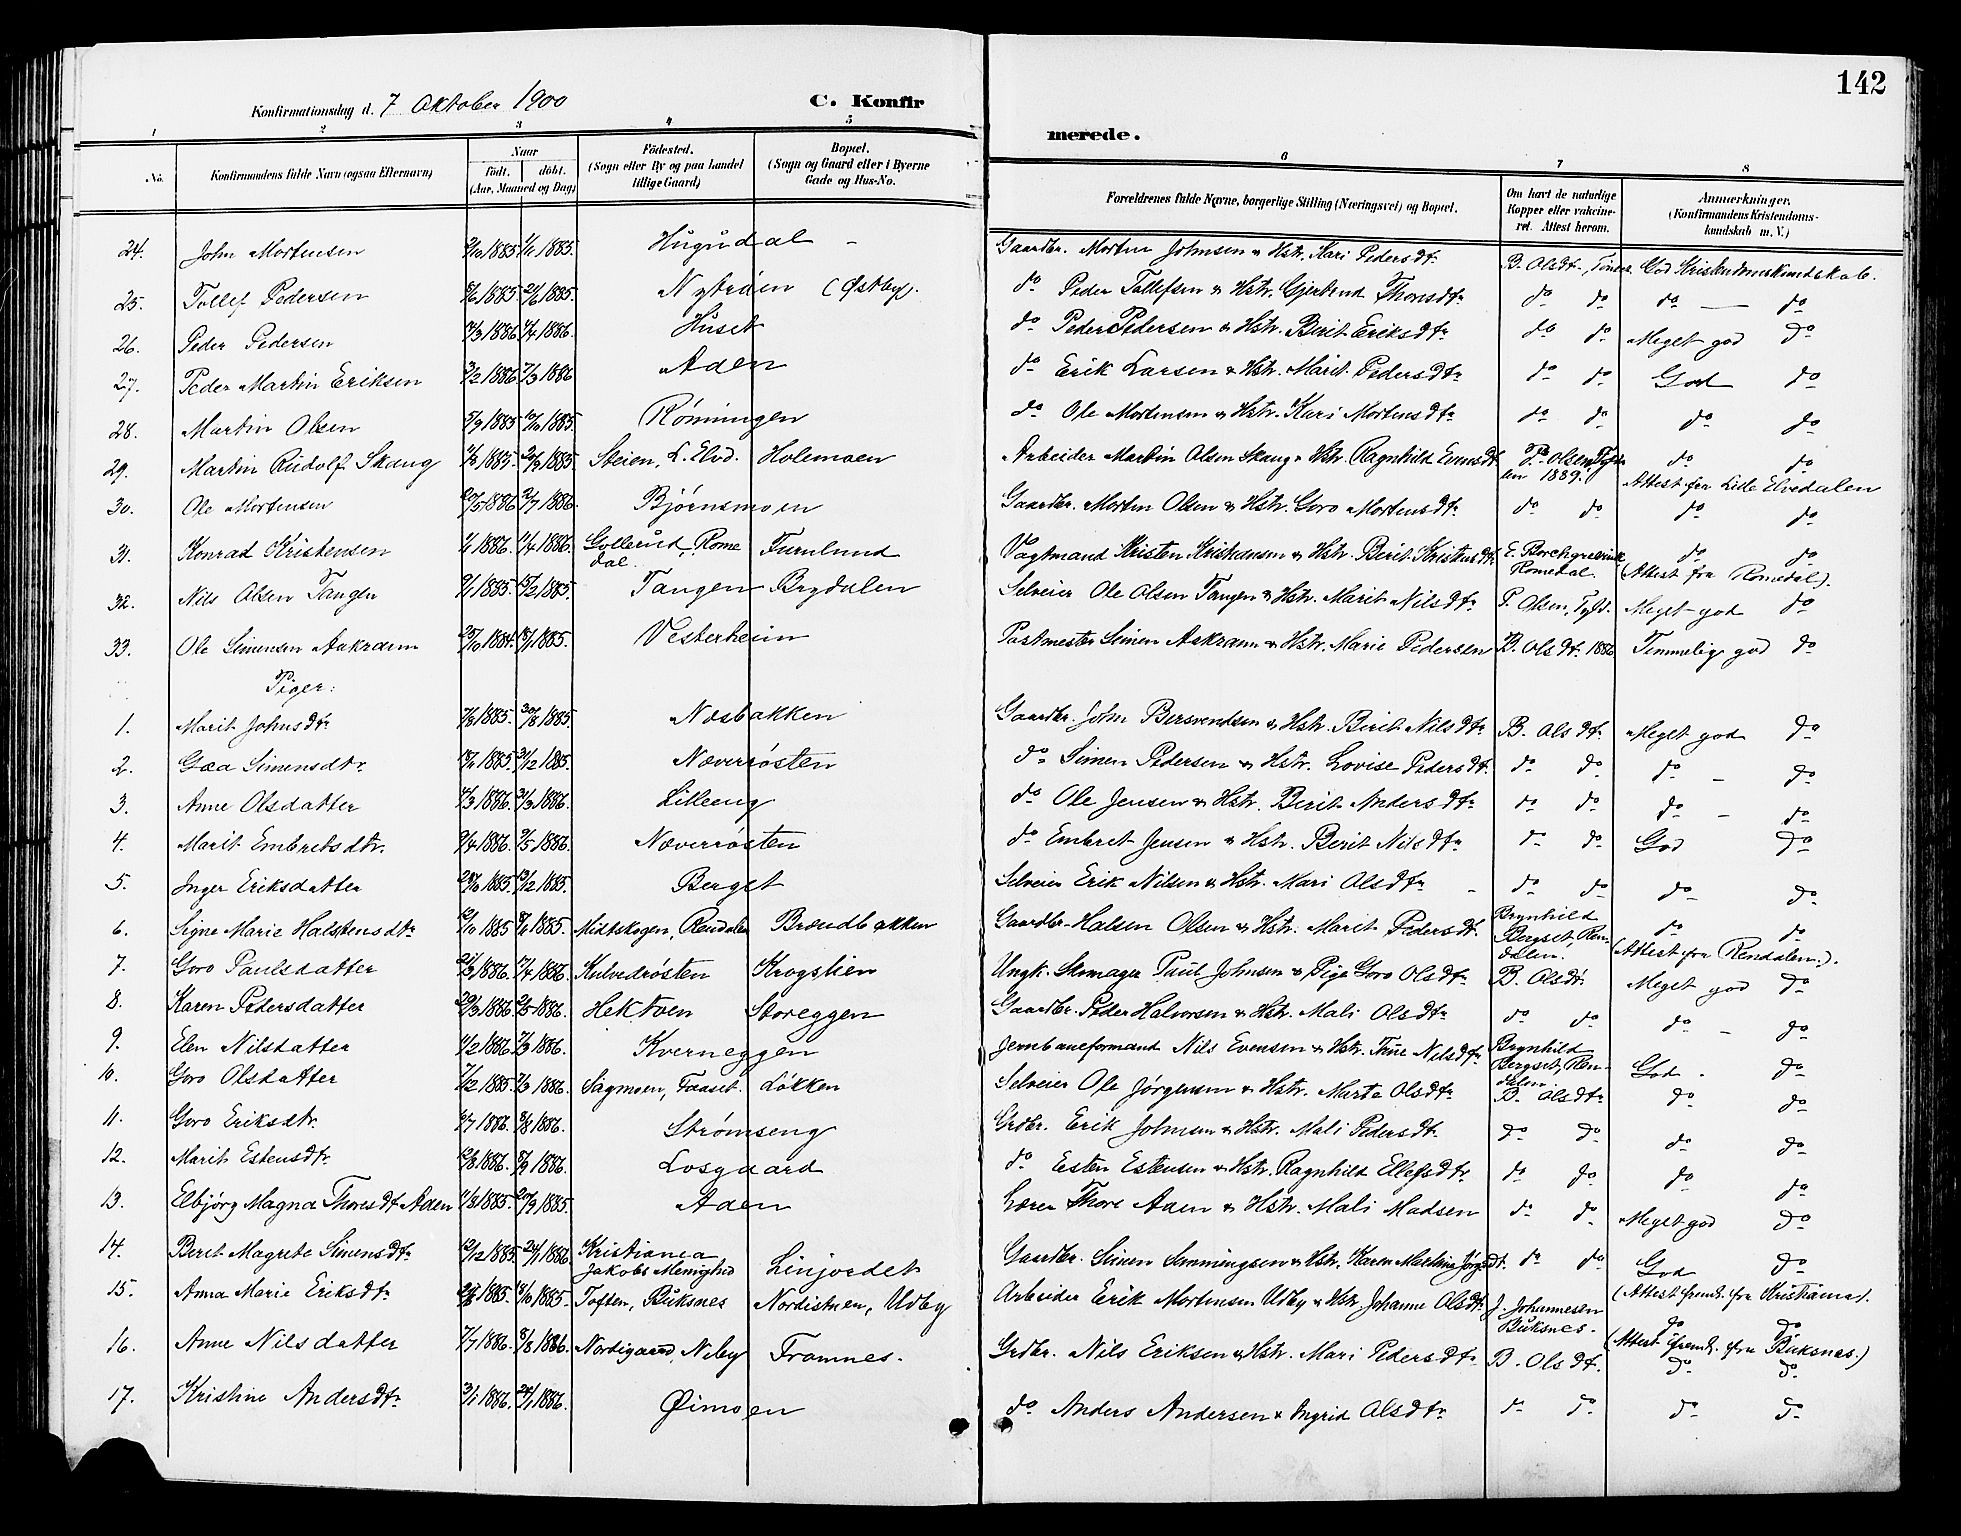 142
Konfirmationsdag d. 7 Oktober 1900
C. Konfirmerede.
1 2 3 4 5 6 7 8
No. Konfirmandens fulde Navn (ogsaa Efternavn) Naar födt. döbt. (Aar, Maaned og Dag) Födested. (Sogn eller By og paa Landet tillige Gaard) Bopæl. (Sogn og Gaard eller i Byerne Gade og Hus-No. Forældrenes fulde Navne, borgerlige Stilling (Næringsvei) og Bopæl. Om havt de naturlige Kopper eller vaccineret. Attest herom. Anmærkninger. (Konfirmandens Kristendomskundskab m. V.)
24. John Mortensen 1885 1885. Hugudal Gaardbr. Morten Johnsen & Hstr. Mari Pedersdtr B. Olsdtr, God Kristendomskundskab.
25. Tollef Pedersen 1885 1885. Nytrøen (Østby). do Peder Tollefsen & Hstr. Gjertrud Thoresdtr do do do — do
26. Peder Pedersen 1886 1886. Huset do Peder Pedersen & Hstr. Berit Eriksdtr do do Meget god do
27. Peder Martin Eriksen 3/2 1886 7/3 1886 Aden do Erik Larsen & Hstr. Marit Pedersdtr do do God do
28. Martin Olsen 5/9 1885 1885. Rønningen do Ole Mortensen & Hstr. Kari Mortensdtr do do do do
29. Martin Rudolf Skang 1885. 1885 Steien, L. Elvd. Holemoen Arbeider Martin Olsen Skang & Hstr. Ragnhild Evensdtr P. Olsen, Tyldalen 1889. do do Attest fra Lille Elvedalen
30. Ole Mortensen 1886 2/7 1886. Bjørnsmoen Gaardbr. Morten Olsen & Hstr. Goro Mortensdtr do do do do
31. Konrad Kristensen 1886. 1886. Gollerud, Romedal. Furulund Vogtmand Kristen Kristensen & Hstr. Berit Kristensdtr E. Borchgrevink Romedal. do do (Attest fra Romedal).
32. Nils Olsen Tangen 1885. 1885. Tangen Brydalen Selveier Ole Olsen Tangen & Hstr. Marit Nilsdtr P. Olsen, Tyld. Meget god do
33. Ole Simensen Aakrann 25/10 1884. 1885. Vesterheim Postmester Simen Aakrann & Hstr. Marie Pedersen B. Olsdtr. 1886 Temmelig god do
Piger:
1. Marit Johnsdtr 1885. 30/8 1885. Næsbakken Gaardbr. John Bersvendsen & Hstr. Berit Nilsdtr B. Olsdtr. Meget god do
2. Gea Simensdtr. 1885. 1885. Næverrøsten do Simen Pedersen & Hstr. Lovise Pedersdtr. do do do - do
3. Anne Olsdatter 1886. 1886. Lilleeng do Ole Jensen & Hstr. Berit Andersdtr do do do - do
4. Marit Embretsdtr. 9/4 1886. 9/5 1886. Næverrøsten do Embret Jensen & Hstr. Berit Nilsdtr do do God do
5. Inger Eriksdatter 1885. 1885. Berget Selveier Erik Nilsen & Hstr. Mari Olsdtr - do do do do
6. Signe Marie Halstensdtr 1885 1885. Midtskogen, Rendalen Brændbakken Gaardbr. Halsen Olsen & Hstr. Marit Pedersdtr. Brynhild Bergset, Rendalen. do do (Attest fra Rendalen).
7. Goro Paulsdatter 1886. 1886. Kulvedrøsten Krogstien Ungk. Skomager Paul Johnsen & Pige Goro Olsdtr B. Olsdtr. Meget god do
8. Karen Pedersdatter 1886. 1886. Hektoen Storeggen Gaardbr. Peder Halvorsen & Hstr. Mali Olsdtr do do do - do
9. Elen Nilsdatter 1886. 1886. Kverneggen Jernbaneformand Nils Evensen & Hstr. Trine Nilsdtr Brynhild Bergset, Rendalen. God do
10. Goro Olsdatter 1885. 1886. Sagmoen, Faaset Løkken Selveier Ole Jørgensen & Hstr. Marte Olsdtr B. Olsdtr do do
11. Goro Eriksdtr. 1886. 8/8 1886. Strømseng Grdbr. Erik Johnsen & Hstr. Mali Pedersdtr. do do do do
12. Marit Estensdtr. 1886. 1886. Losgaard do Esten Estensen & Hstr. Ragnhild Ellefsdtr do do do do
13. Elbjørg Magna Thoresdt Aden 1885. 20/9 1885. Aden Lærer Thore Aden & Hstr. Mali Madsen do do Meget god do
14. Berit Magrete Simensdtr 12/12 1885. 24/1 1886. Kristiania Jakobs Menighed Linjordet Gaardbr. Simen Simmingsen & Hstr. Karen Martine Jørgsdt. do do God do (Attest fremt. fra Kristiania).
15. Anna Marie Eriksdtr 1885. 1885. Toften, Buksnes Nordistuen, Udby Arbeider Erik Mortensen Udby & Hstr Johanne Olsdtr. J. Johannesen Buksnes. do do (Attest fremt. fra Buksnes.)
16. Anne Nilsdatter 7/7 1886. 8/8 1886. Nordigaard, Neby Framnes. Grdbr. Nils Eriksen & Hstr. Mari Pedersdtr B. Olsdtr. do do
17. Kristine Andersdtr 3/1 1886. 24/1 1886. Øimoen do Anders Andersen & Ingrid Olsdtr do do do do